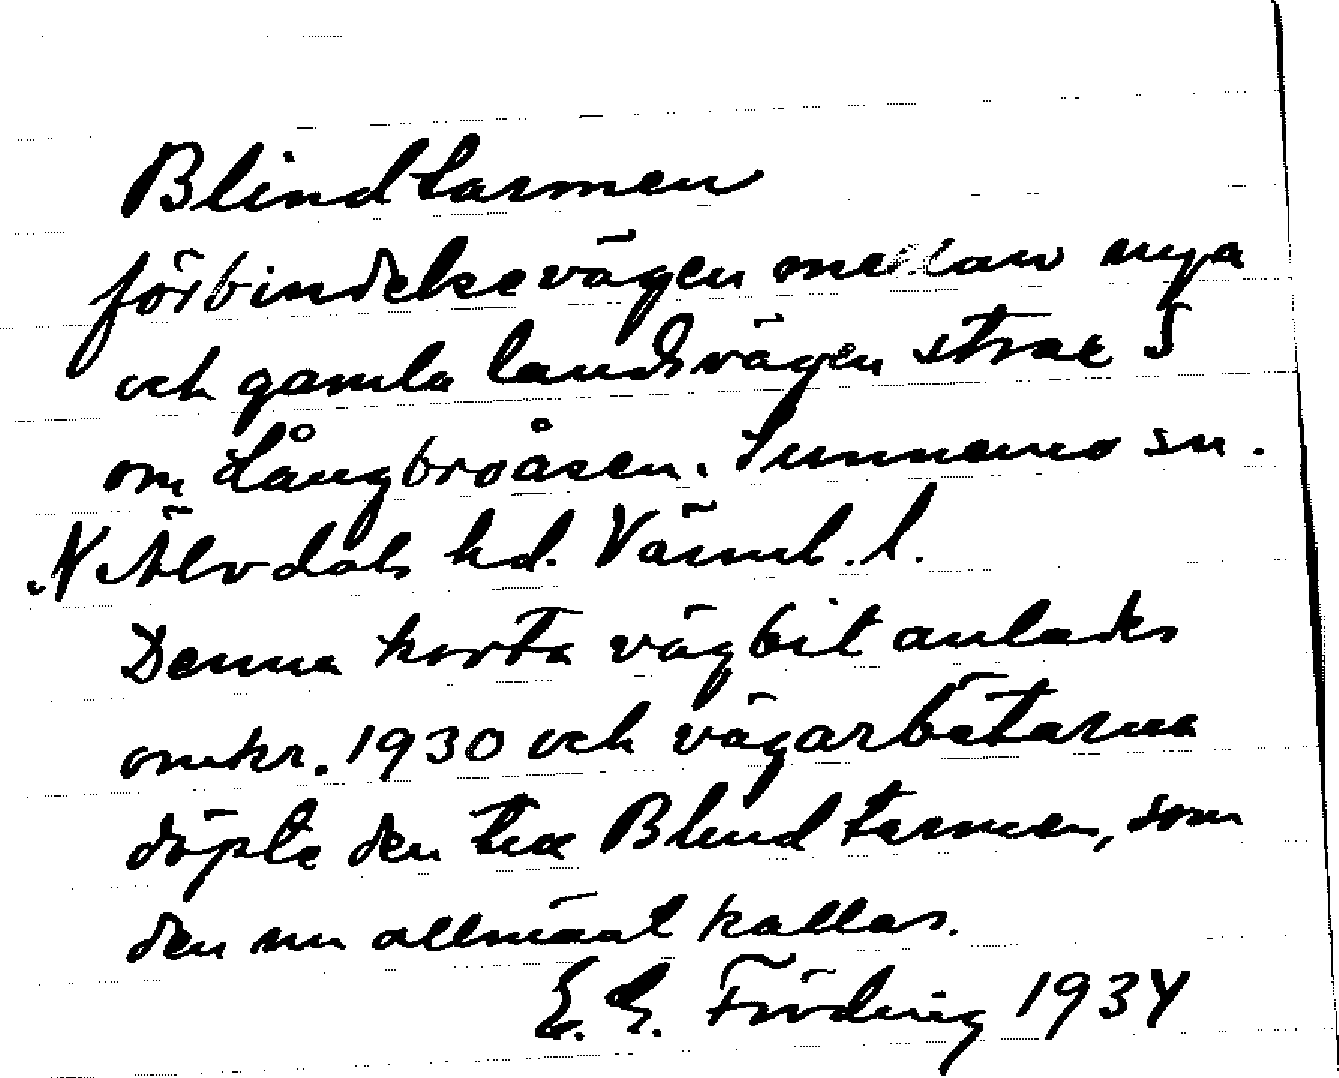 Blindtarmen
förbindelsevägen mellan nya
och gamla landsvägen strax S
om Långbroåsen. Sunnemo sn.
N. Älvdals hd. Värml. l.
Denna korta vägbit anlades
omkr. 1930 och vägarbetarna
döpte den till Blindtarmen, som
den nu allmänt kallas.
E. G. Fröding 1934